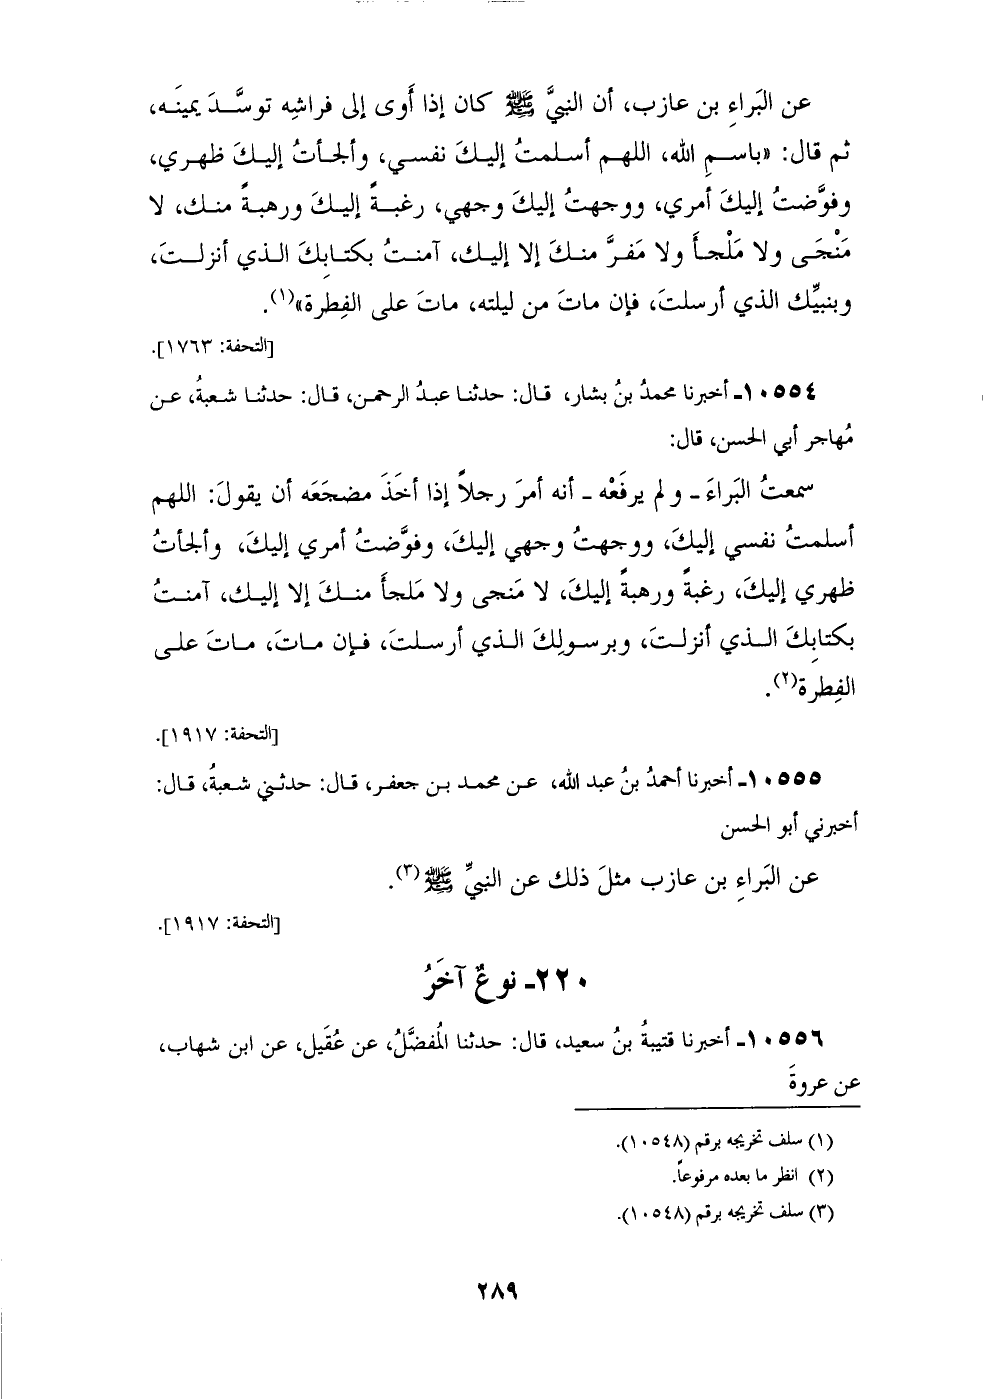 عن البَراءِ بن عازب، أن النبيَّ ﷺ كان إذا أَوى إلى فراشِه توسَّدَ يمينَه،
ثم قال: «باسمِ الله، اللهم أسلمتُ إليكَ نفسي، وألجأتُ إليكَ ظهري،
وفوَّضتُ إليكَ أمري، ووجهتُ إليكَ وجهي، رغبةً إليكَ ورهبةً منك، لا
مَنْجَى ولا مَلْجأَ ولا مَفرَّ منكَ إلا إليك، آمنتُ بكتابِكَ الذي أنزلتَ،
وبنبيِّك الذي أرسلتَ، فإن ماتَ من ليلته، ماتَ على الفِطرة»(١).
[التحفة: ١٧٦٣].
١٠٥٥٤ـ أخبرنا محمدُ بنُ بشار، قال: حدثنا عبدُ الرحمن، قال: حدثنا شعبةُ، عن
مُهاجر أبي الحسن، قال:
سمعتُ البَراءَ ـ ولم يرفَعْه ـ أنه أمرَ رجلاً إذا أخَذَ مضجَعَه أن يقولَ: اللهم
أسلمتُ نفسي إليكَ، ووجهتُ وجهي إليكَ، وفوَّضتُ أمري إليكَ، وألجأتُ
ظهري إليكَ، رغبةً ورهبةً إليكَ، لا مَنجى ولا مَلجأَ منكَ إلا إليك، آمنتُ
بكتابِكَ الذي أنزلتَ، وبرسولِكَ الذي أرسلتَ، فإن ماتَ، ماتَ على
الفِطرة(٢).
[التحفة: ١٩١٧].
١٠٥٥٥ـ أخبرنا أحمدُ بنُ عبد الله، عن محمد بن جعفر، قال: حدثني شعبةُ، قال:
أخبرني أبو الحسن
عن البَراءِ بن عازب مثلَ ذلك عن النبيِّ ﷺ(٣).
[التحفة: ١٩١٧].
٢٢٠ـ نوعٌ آخَرُ
١٠٥٥٦ـ أخبرنا قتيبةُ بنُ سعيد، قال: حدثنا المُفضَّلُ، عن عُقَيل، عن ابن شهاب،
عن عروةَ
(١) سلف تخريجه برقم (١٠٥٤٨).
(٢) انظر ما بعده مرفوعاً.
(٣) سلف تخريجه برقم (١٠٥٤٨).
٢٨٩